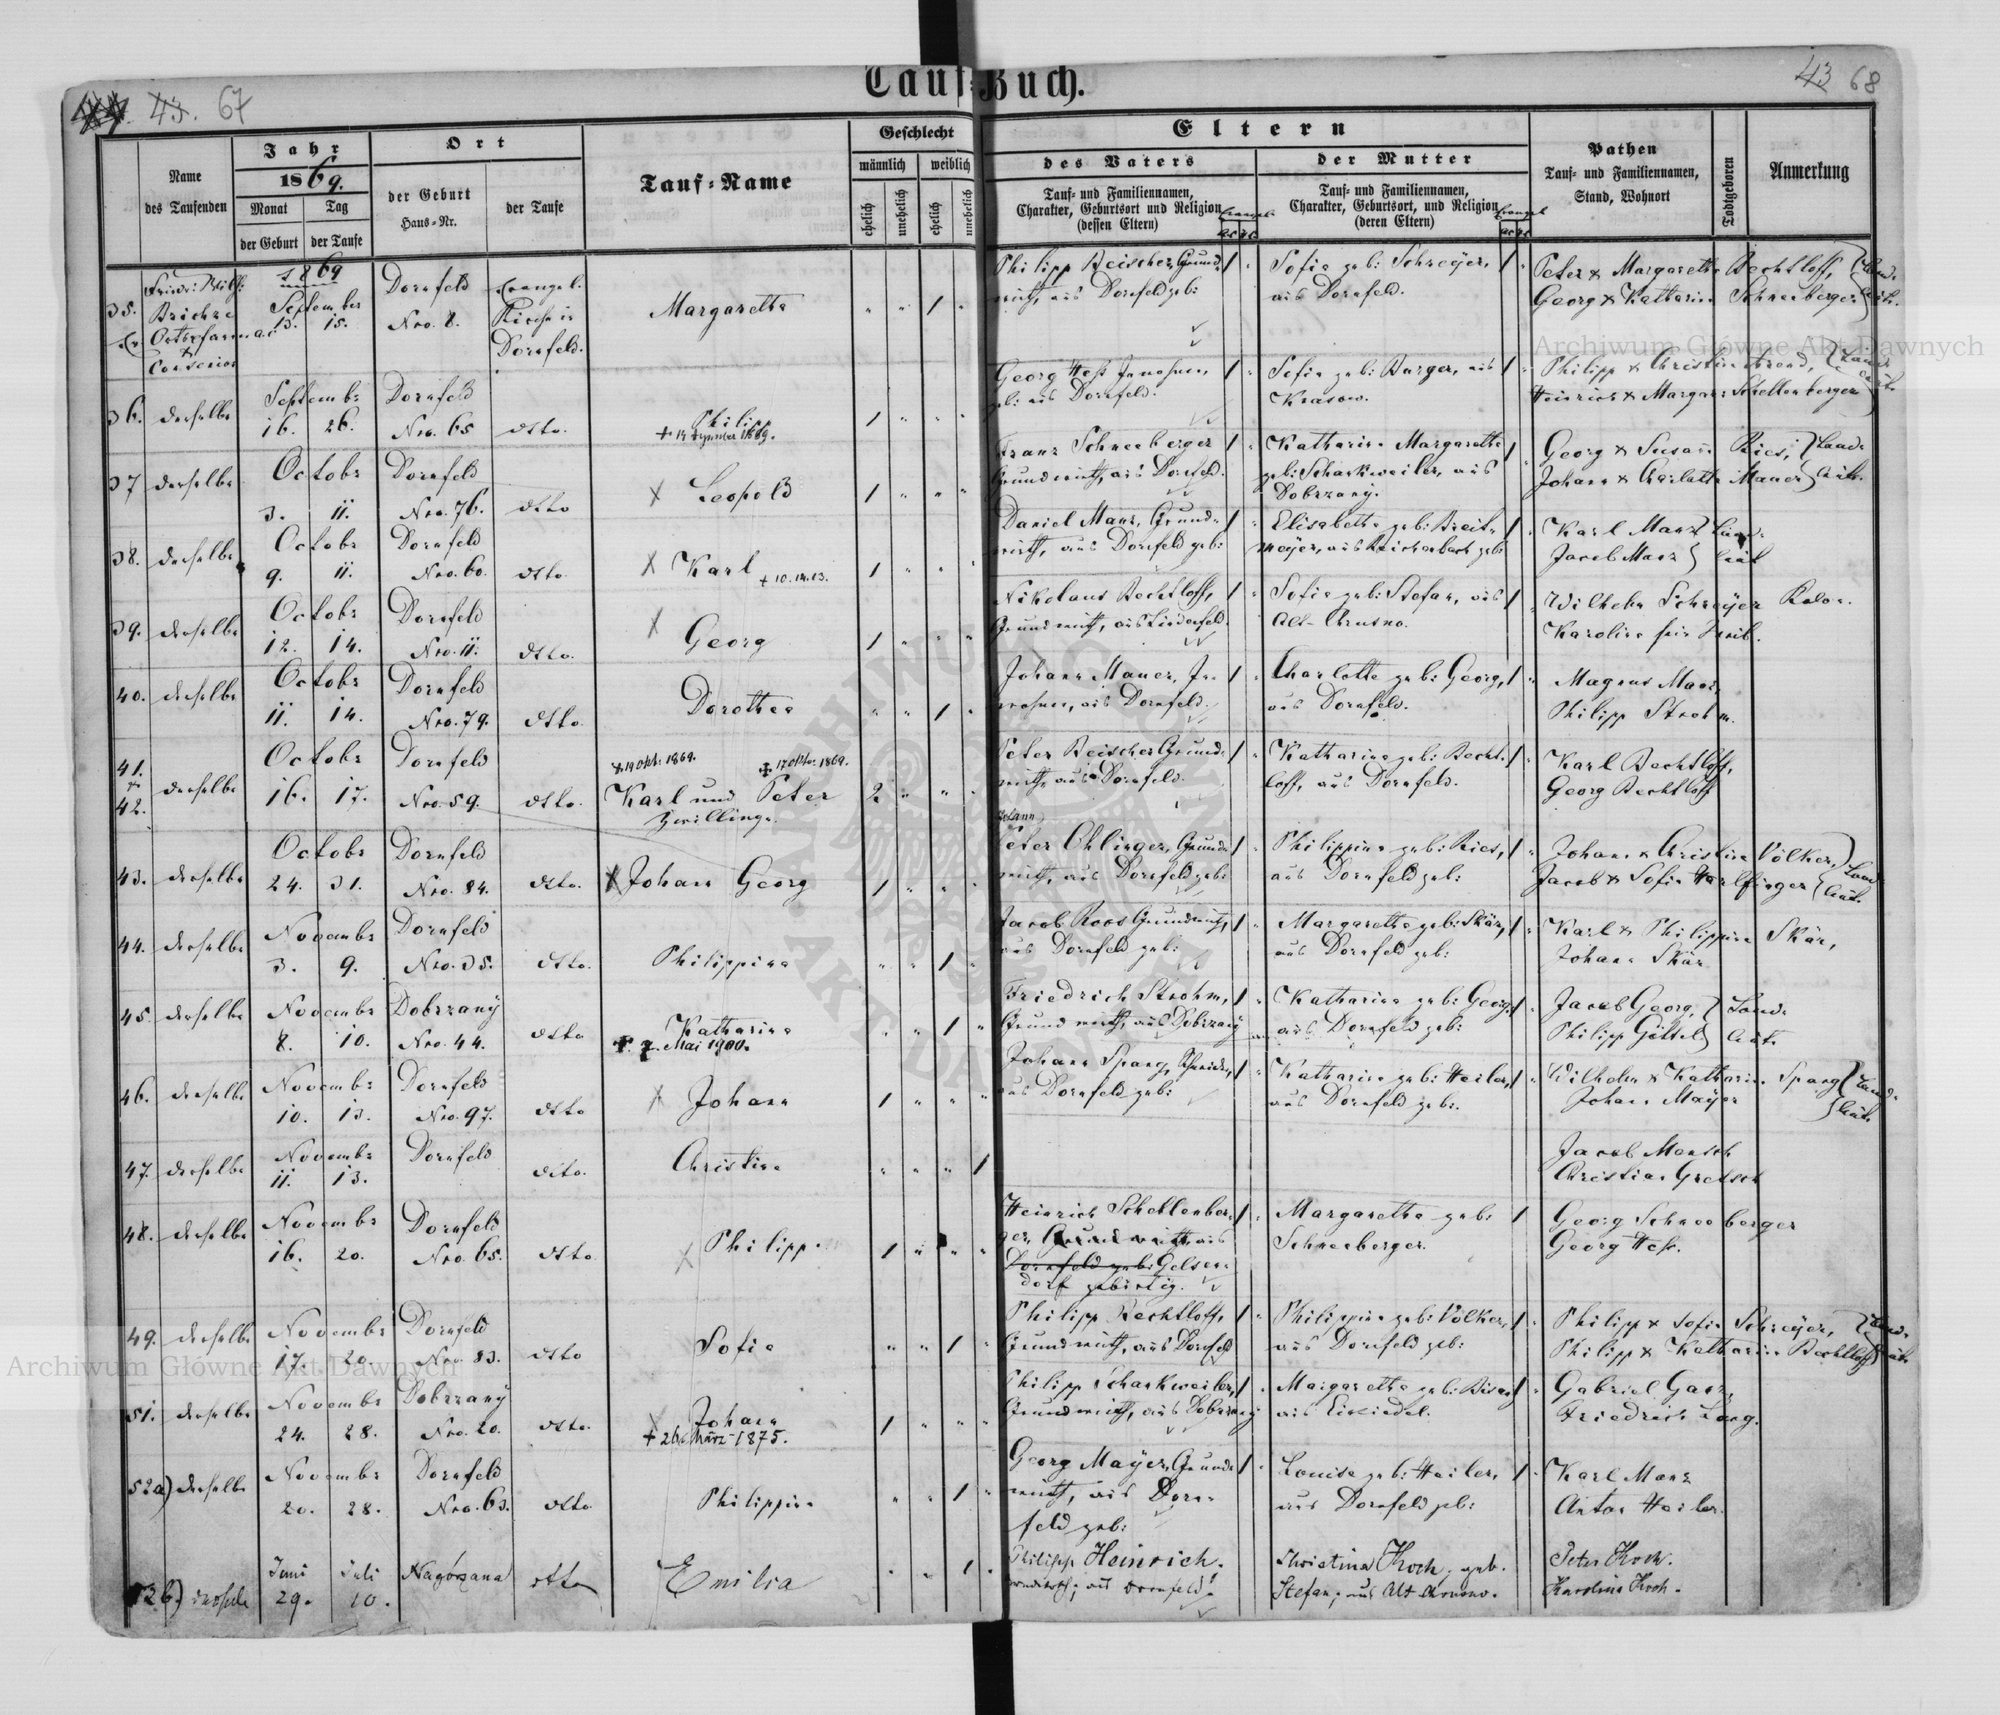 Tauf-Buch.
44. 43. 67
43 68
Name
des Taufenden
Jahr
1869.
Monat
Tag
der Geburt
der Taufe
Ort
der Geburt
Haus-Nr.
der Taufe
Tauf-Name
Geschlecht
männlich
weiblich
ehelich
unehelich
ehelich
unehelich
Eltern
des Vaters
Tauf- und Familiennamen,
Charakter, Geburtsort und Religion
(dessen Eltern)
der Mutter
Tauf- und Familiennamen,
Charakter, Geburtsort, und Religion
(deren Eltern)
Pathen
Tauf- und Familiennamen,
Stand, Wohnort
Todtgeboren
Anmerkung
1869
35.
September
13. 15.
Dornfeld
Nro. 8.
Evangel.
Kirche in
Dornfeld.
Margaretha
1
Philipp Reischer, Grund-
wirth, aus Dornfeld geb:
Sofia geb: Schreyer,
aus Dornfeld.
Peter & Margaretha Bechtloff,
Georg & Katharina Schneeberger
36. derselbe
Septembr
16. 26.
Dornfeld
Nro. 65
dtto.
Philipp
1
Georg Heß Inwohner,
geb: aus Dornfeld.
Sofia geb: Burger, aus
Krasow.
Philipp & Christina
Heinrich & Margar: Schellenberger
37 derselbe
Octobr
3. 11.
Dornfeld
Nro. 76.
dtto
Leopold
1
Franz Schneeberger
Grundwirth, aus Dornfeld.
Katharina Margaretha
geb: Scharkweiler, aus
Dobrzany.
Georg & Susan Ries,
Johann & Charlotte Mauer
Land-
leute.
38. derselbe
Octobr
9. 11.
Dornfeld
Nro. 60.
dtto.
Karl
+ 10.14.13.
1
Daniel Manz, Grund-
wirth, aus Dornfeld geb:
Elisabetha geb: Breit-
meyer, aus Reichenbach geb:
Karl Manz
Jacob Manz
39. derselbe
Octobr
12. 14.
Dornfeld
Nro. 11.
dtto.
Georg
1
Nikolaus Bechtloff,
Grundwirth, aus Lindenfeld.
Sofia geb: Stefan, aus
Alt-Chrusno.
Wilhelm Schreyer
Karolina sein Weib.
40. derselbe
Octobr
11. 14.
Dornfeld
Nro. 79.
dtto.
Dorothea
1
Johann Mauer, In-
wohner, aus Dornfeld.
Charlotte geb: Georg,
aus Dornfeld.
Magnus Manz
Philipp Strohm.
41.
&
42.
derselbe
Octobr
16. 17.
Dornfeld
Nro. 59.
dtto.
+ 19 Okt: 1869.
+ 17 Okto: 1869.
Karl und Peter
Zwillinge.
2
Peter Reischer Grund-
wirth, aus Dornfeld.
Katharina geb: Becht-
loff, aus Dornfeld.
Karl Bechtloff,
Georg Bechtloff
43. derselbe
Octobr
24. 31.
Dornfeld
Nro. 84.
dtto.
Johann Georg
1
Johann
Peter Ohlinger, Grund-
wirth, aus Dornfeld geb:
Philippina geb: Ries,
aus Dornfeld geb:
Johann & Christina Völker,
Jacob & Sofia Harlfinger
Land-
leute
44. derselbe
Novembr
3. 9.
Dornfeld
Nro. 35.
dtto.
Philippina
1
Jacob Roos Grundwirth,
aus Dornfeld geb:
Margaretha geb: Skär,
aus Dornfeld geb:
Karl & Philippina Skär,
Johann Skär
45. derselbe
Novembr
8. 10.
Dobrzany
Nro. 44.
dtto
Katharina
+ 7. Mai 1900.
1
Friedrich Strohm,
Grundwirth, aus Dobrzany
Katharina geb: Georg,
aus Dornfeld geb:
Jacob Georg,
Philipp Göttel
Land-
leute
46. derselbe
Novembr
10. 13.
Dornfeld
Nro. 97.
dtto
Johann
1
Johann Spang, Schneider,
aus Dornfeld geb:
Katharina geb: Heiler,
aus Dornfeld geb:
Wilhelm & Katharina Spang
Johann Mayer
Land-
leute
47. derselbe
Novembr
11. 13.
Dornfeld
dtto.
Christina
1
Jacob Mensch
Christian Gretsch
48. derselbe
Novembr
16. 20.
Dornfeld
Nro. 65.
dtto
Philipp.
1
Heinrich Schellenber-
ger, Grundwirth, aus
Dornfeld geb: Gelsen-
dorf gebürtig.
Margaretha geb:
Schneeberger.
Georg Schneeberger
Georg Heß.
49. derselbe
Novembr
17. 20.
Dornfeld
Nro. 83.
dtto
Sofia
1
Philipp Bechtloff,
Grundwirth, aus Dornfeld
Philippina geb: Völker,
aus Dornfeld geb:
Philipp & Sofia Schreyer,
Philipp & Katharina Bechtloff
51. derselbe
Novembr
24. 28.
Dobrzany
Nro. 20.
dtto.
Johann
+ 26. März 1875.
1
Philipp Scharkweiler,
Grundwirth, aus Dobrzany
Margaretha geb:
aus Einsiedel.
Gabriel Ganz,
Friedrich Lang.
52a) derselbe
Novembr
20. 28.
Dornfeld
Nro. 63.
dtto
Philippina
1
Georg Mayer, Grund-
wirth, aus Dorn-
feld geb:
Louisa geb: Heiler,
aus Dornfeld geb:
Karl Manz
Anton Heiler.
52b) derselbe
Juni
29.
Juli
10.
Nagórzana
dtto
Emilia
1
Philipp Heinrich,
Grundwirth, aus Dornfeld.
Christina Koch, geb.
Stefan, aus Alt Chrusno.
Peter Koch.
Karolina Koch.
Archiwum Główne Akt Dawnych
Archiwum Główne Akt Dawnych